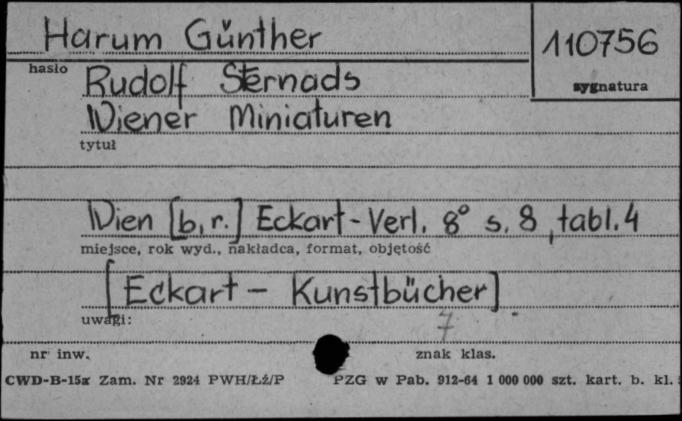 Harum Günther
110756
hasło
sygnatura
Rudolf Sternads
Wiener Miniaturen
tytuł
Wien [b.r.] Eckart-Verl. 8° s. 8, tabl. 4
miejsce, rok wyd., nakładca, format, objętość
[Eckart - Kunstbücher]
uwagi:
7
nr inw.
znak klas.
CWD-B-15a Zam. Nr 2924 PWH/Łż/P
PZG w Pab. 912-64 1 000 000 szt. kart. b. kl.